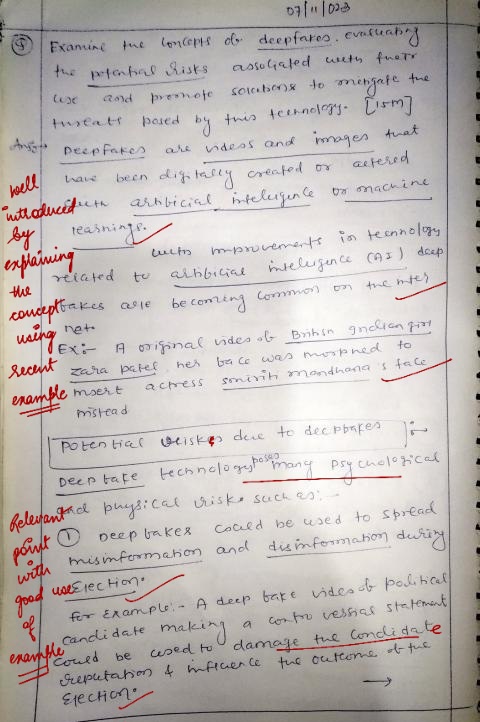 07/11/023
Q Examine the concepts of deepfakes, evaluating
the potential risks associated with their
use and promote solutions to mitigate the
threats posed by this technology. [15M]
Ans:→ Deepfakes are videos and images that
have been digitally created or altered
with artificial intelligence or machine
learnings.
well
introduced
by
explaining
the
concept
using
recent
example
with improvements in technology
related to artificial intelligence (AI) deep
fakes are becoming common on the inter
net.
Ex:- A original video of British Indian girl
zara patel, her face was morphed to
insert actress smiriti mandhana's face
instead
Potential risks due to deepfakes :-
Deepfake technology poses many psychological
and physical risks such as:-
Relevant
point
with
good use
of
example
① Deepfakes could be used to spread
misinformation and disinformation during
Election.
for example:- A deepfake video of political
candidate making a controversial statement
could be used to damage the condidate
reputation & influence the outcome of the
Election.
→